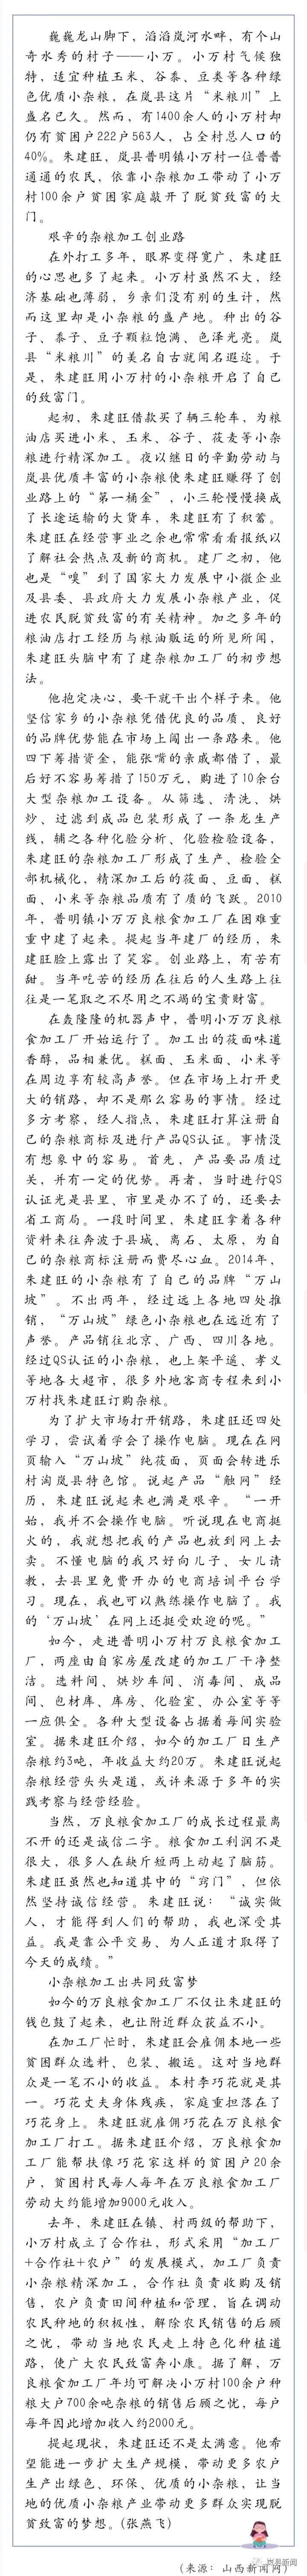 巍巍龙山脚下，滔滔岚河水畔，有个山
奇水秀的村子——小万。小万村气候独
特，适宜种植玉米、谷黍、豆类等各种绿
色优质小杂粮，在岚县这片“米粮川”上
盛名已久。然而，有1400余人的小万村却
仍有贫困户222户563人，占全村总人口的
40%。朱建旺，岚县普明镇小万村一位普普
通通的农民，依靠小杂粮加工带动了小万
村100余户贫困家庭敲开了脱贫致富的大
门。
艰辛的杂粮加工创业路
在外打工多年，眼界变得宽广，朱建旺
的心思也多了起来。小万村虽然不大，经
济基础也薄弱，乡亲们没有别的生计，然
而这里却是小杂粮的盛产地。种出的谷
子、黍子、豆子颗粒饱满、色泽光亮。岚
县“米粮川”的美名自古就闻名遐迩。于
是，朱建旺用小万村的小杂粮开启了自己
的致富门。
起初，朱建旺借款买了辆三轮车，为粮
油店买进小米、玉米、谷子、莜麦等小杂
粮进行精深加工。夜以继日的辛勤劳动与
岚县优质丰富的小杂粮使朱建旺赚得了创
业路上的“第一桶金”，小三轮慢慢换成
了长途运输的大货车，朱建旺有了积蓄。
朱建旺在经营事业之余也常常看看报纸以
了解社会热点及新的商机。建厂之初，他
也是“嗅”到了国家大力发展中小微企业
及县委、县政府大力发展小杂粮产业，促
进农民脱贫致富的有关精神。加之多年的
粮油店打工经历与粮油贩运的所见所闻，
朱建旺头脑中有了建杂粮加工厂的初步想
法。
他抱定决心，要干就干出个样子来。他
坚信家乡的小杂粮凭借优良的品质、良好
的品牌优势能在市场上闯出一条路来。他
四下筹措资金，能张嘴的亲戚都借了，最
后好不容易筹措了150万元，购进了10余台
大型杂粮加工设备。从筛选、清洗、烘
炒、过滤到成品包装形成了一条龙生产
线，辅之各种化验分析、化验检验设备，
朱建旺的杂粮加工厂形成了生产、检验全
部机械化，精深加工后的莜面、豆面、糕
面、小米等杂粮品质有了质的飞跃。2010
年，普明镇小万万良粮食加工厂在困难重
重中建了起来。提起当年建厂的经历，朱
建旺脸上露出了笑容。创业路上，有苦有
甜。当年吃苦的经历在往后的人生路上往
往是一笔取之不尽用之不竭的宝贵财富。
在轰隆隆的机器声中，普明小万万良粮
食加工厂开始运行了。加工出的莜面味道
香醇，品相兼优。糕面、玉米面、小米等
在周边享有较高声誉。但在市场上打开更
大的销路，却不是那么容易的事情。经过
多方考察，经人指点，朱建旺打算注册自
己的杂粮商标及进行产品QS认证。事情没
有想象中的容易。首先，产品要品质过
关，并有一定的优势。再者，当时进行QS
认证光是县里、市里是办不了的，还要去
省工商局。一段时间里，朱建旺拿着各种
资料来往奔波于县城、离石、太原，为自
己的杂粮商标注册而费尽心血。2014年，
朱建旺的小杂粮有了自己的品牌“万山
坡”。不出两年，经过远上各地四处推
销，“万山坡”绿色小杂粮也在远近有了
声誉。产品销往北京、广西、四川各地。
经过QS认证的小杂粮，也上架平遥、孝义
等地各大超市，很多外地客商专程来到小
万村找朱建旺订购杂粮。
为了扩大市场打开销路，朱建旺还四处
学习，尝试着学会了操作电脑。现在在网
页输入“万山坡”纯莜面，页面会转进乐
村淘岚县特色馆。说起产品“触网”经
历，朱建旺说起来也满是艰辛。“一开
始，我并不会操作电脑。听说现在电商挺
火的，我就想把我的产品也放到网上去
卖。不懂电脑的我只好向儿子、女儿请
教，去县里免费开办的电商培训平台学
习。现在，我也可以熟练操作电脑了。我
的‘万山坡’在网上还挺受欢迎的呢。”
如今，走进普明小万村万良粮食加工
厂，两座由自家房屋改建的加工厂干净整
洁。选料间、烘炒车间、消毒间、成品
间、包材库、库房、化验室、办公室等等
一应俱全。各种大型设备占据着每间实验
室。据朱建旺介绍，如今的加工厂日生产
杂粮约3吨，年收益大约20万。朱建旺说起
杂粮经营头头是道，或许来源于多年的实
践考察与经营经验。
当然，万良粮食加工厂的成长过程最离
不开的还是诚信二字。粮食加工利润不是
很大，很多人在缺斤短两上动起了脑筋。
朱建旺虽然也知道其中的“窍门”，但依
然坚持诚信经营。朱建旺说：“诚实做
人，才能得到人们的帮助，我也深受其
益。我是靠公平交易、为人正道才取得了
今天的成绩。”
小杂粮加工出共同致富梦
如今的万良粮食加工厂不仅让朱建旺的
钱包鼓了起来，也让附近群众获益不小。
在加工厂忙时，朱建旺会雇佣本地一些
贫困群众选料、包装、搬运。这对当地群
众是一笔不小的收益。本村李巧花就是其
一。巧花丈夫身体残疾，家庭重担落在了
巧花身上。朱建旺就雇佣巧花在万良粮食
加工厂打工。据朱建旺介绍，万良粮食加
工厂能帮扶像巧花家这样的贫困户20余
户，贫困村民每人每年在万良粮食加工厂
劳动大约能增加9000元收入。
去年，朱建旺在镇、村两级的帮助下，
小万村成立了合作社，形式采用“加工厂
+合作社+农户”的发展模式，加工厂负责
小杂粮精深加工，合作社负责收购及销
售，农户负责田间种植和管理，旨在调动
农民种地的积极性，解除农民销售的后顾
之忧，带动当地农民走上特色化种植道
路，使广大农民致富奔小康。据了解，万
良粮食加工厂年均可解决小万村100余户种
粮大户700余吨杂粮的销售后顾之忧，每户
每年因此增加收入约2000元。
提起现状，朱建旺还不是太满意。他希
望能进一步扩大生产规模，带动更多农户
生产出绿色、环保、优质的小杂粮，让当
地的优质小杂粮产业带动更多群众实现脱
贫致富的梦想。(张燕飞)
岚县新闻
（来源：山西新闻网）